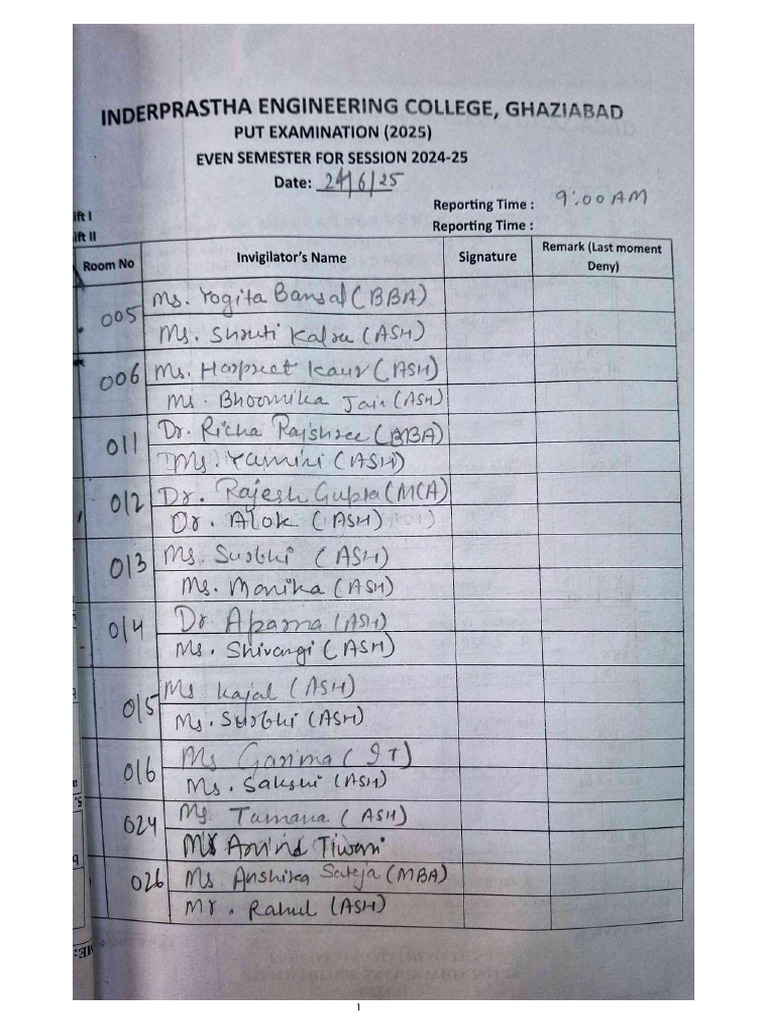 INDERPRASTHA ENGINEERING COLLEGE, GHAZIABAD
PUT EXAMINATION (2025)
EVEN SEMESTER FOR SESSION 2024-25
Date: 24/6/25
Reporting Time : 9:00 AM
ift I
Reporting Time :
ift II
Room No Invigilator's Name Signature Remark (Last moment Deny)
005 Ms. Yogita Bansal (BBA)
Ms. Shruti Kalra (ASH)
006 Ms. Harpreet Kaur (ASH)
Ms. Bhoomika Jain (ASH)
011 Dr. Richa Rajshree (BBA)
Ms. Yamini (ASH)
012 Dr. Rajesh Gupta (MCA)
Dr. Alok (ASH)
013 Ms. Surbhi (ASH)
Ms. Monika (ASH)
014 Dr Aparna (ASH)
Ms. Shivangi (ASH)
015 Ms Kajal (ASH)
Ms. Surbhi (ASH)
016 Ms Garima (IT)
Ms. Sakshi (ASH)
024 Ms. Tamana (ASH)
Mr Arvind Tiwari
026 Ms. Anshika (MBA)
Mr. Rahul (ASH)
1